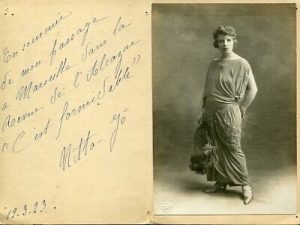 En souvenir
de mon passage
à Marseille dans la
Revue de l'Alcazar
"C'est formidable"
Mitto-Jó
19.3.23